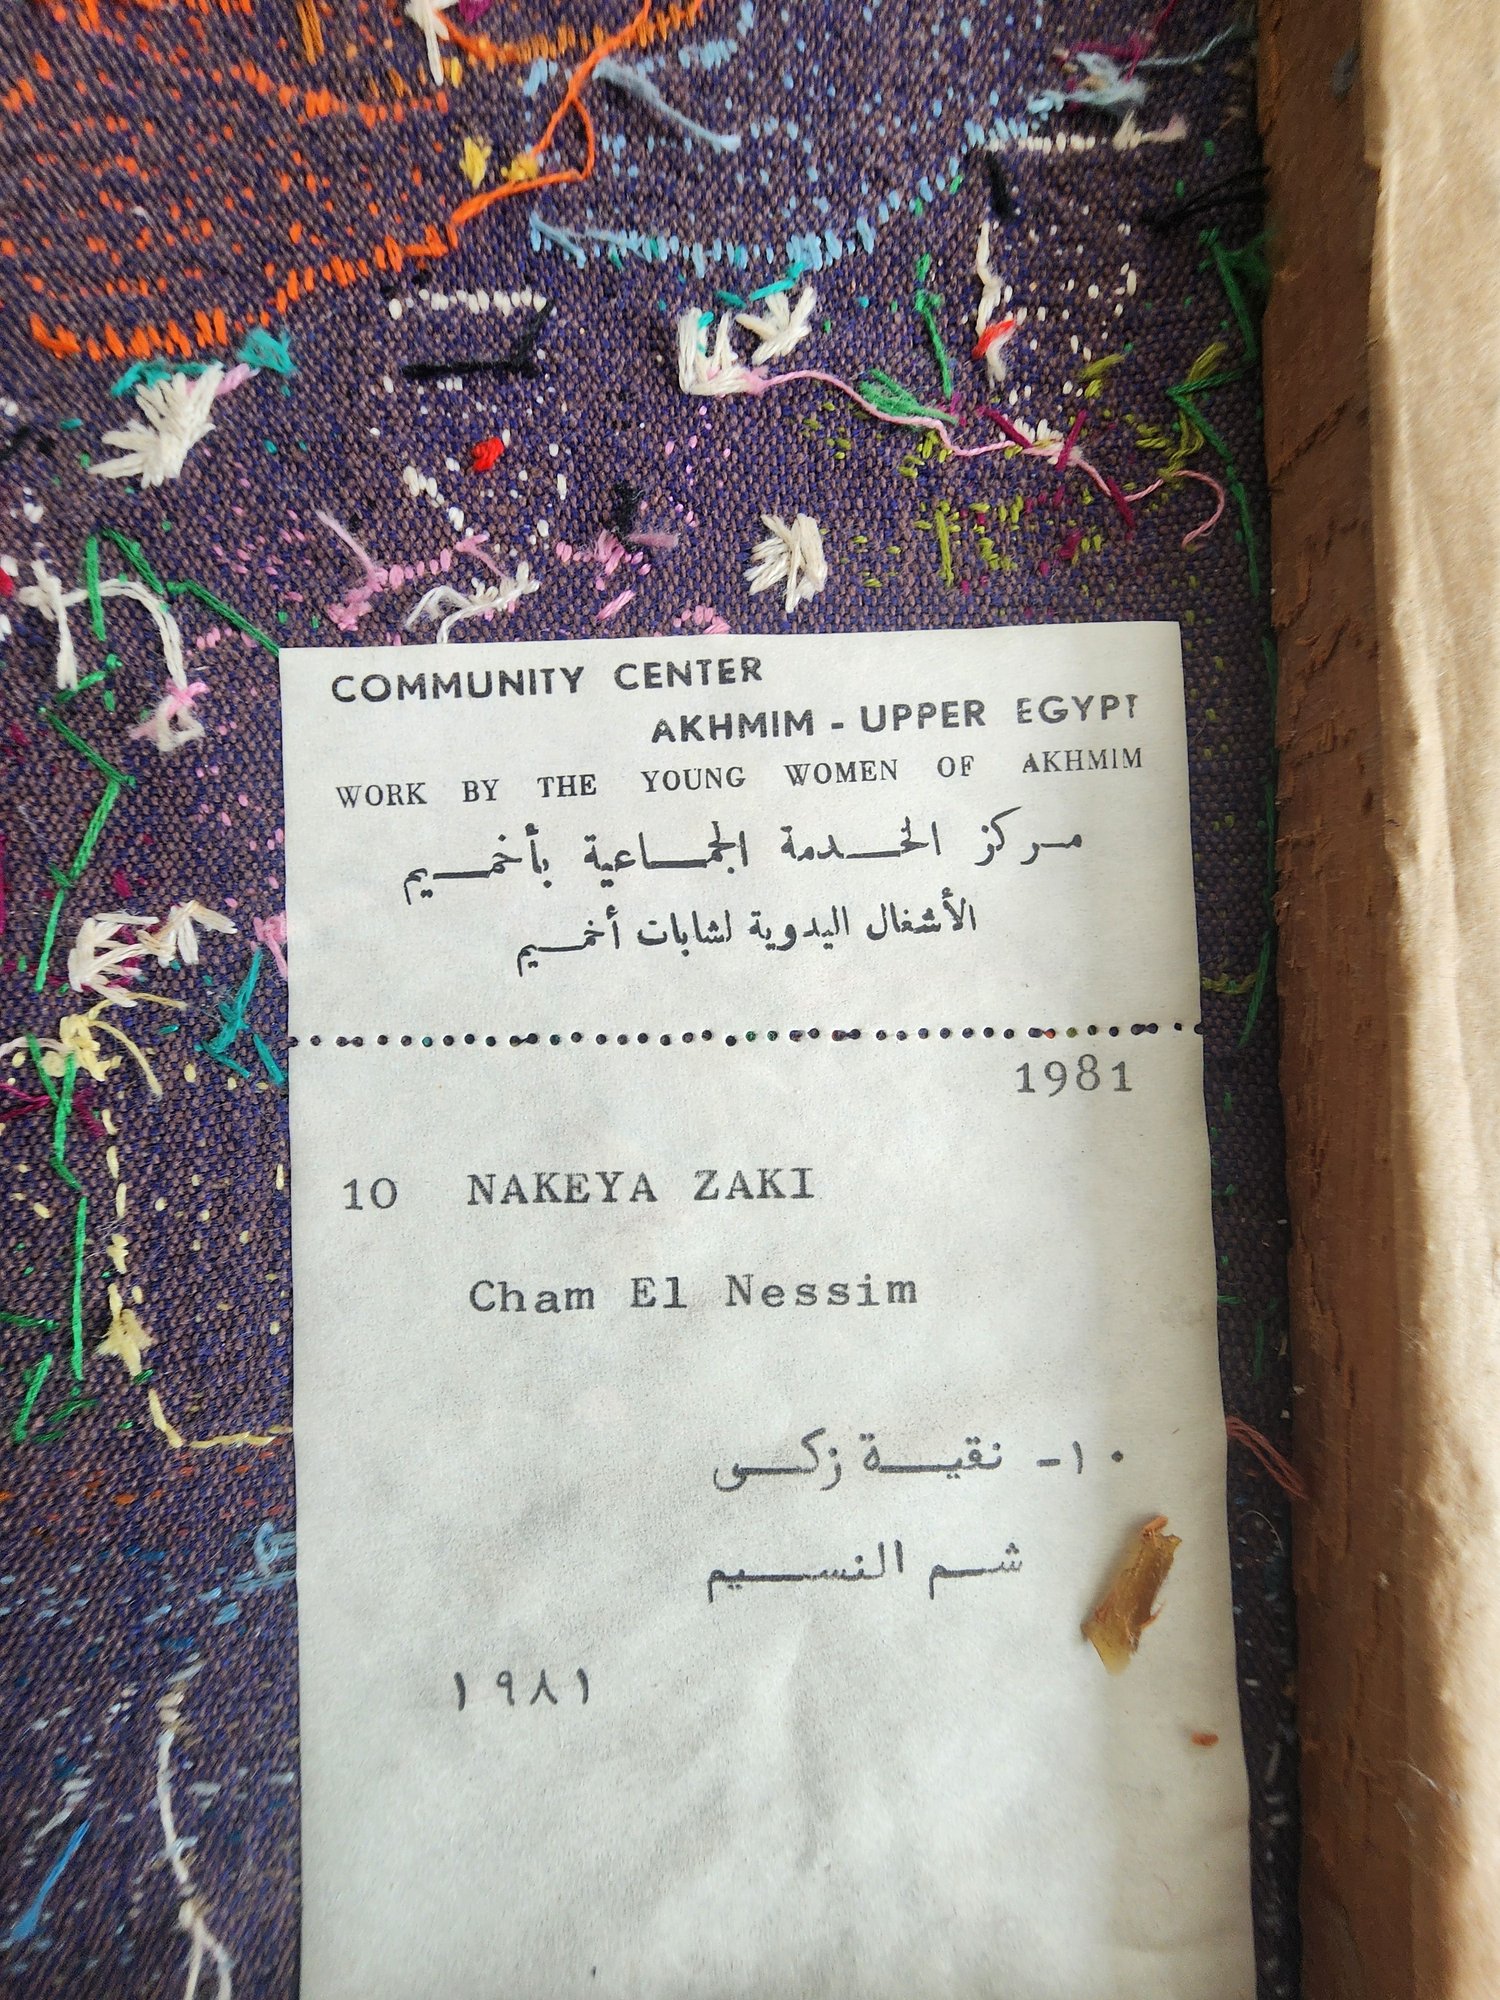 COMMUNITY CENTER
AKHMIM - UPPER EGYPT
WORK BY THE YOUNG WOMEN OF AKHMIM
مركز الخدمة الجماعية بأخميم
الأشغال اليدوية لشابات أخميم
1981
10 NAKEYA ZAKI
Cham El Nessim
١٠- نقية زكى
شم النسيم
١٩٨١